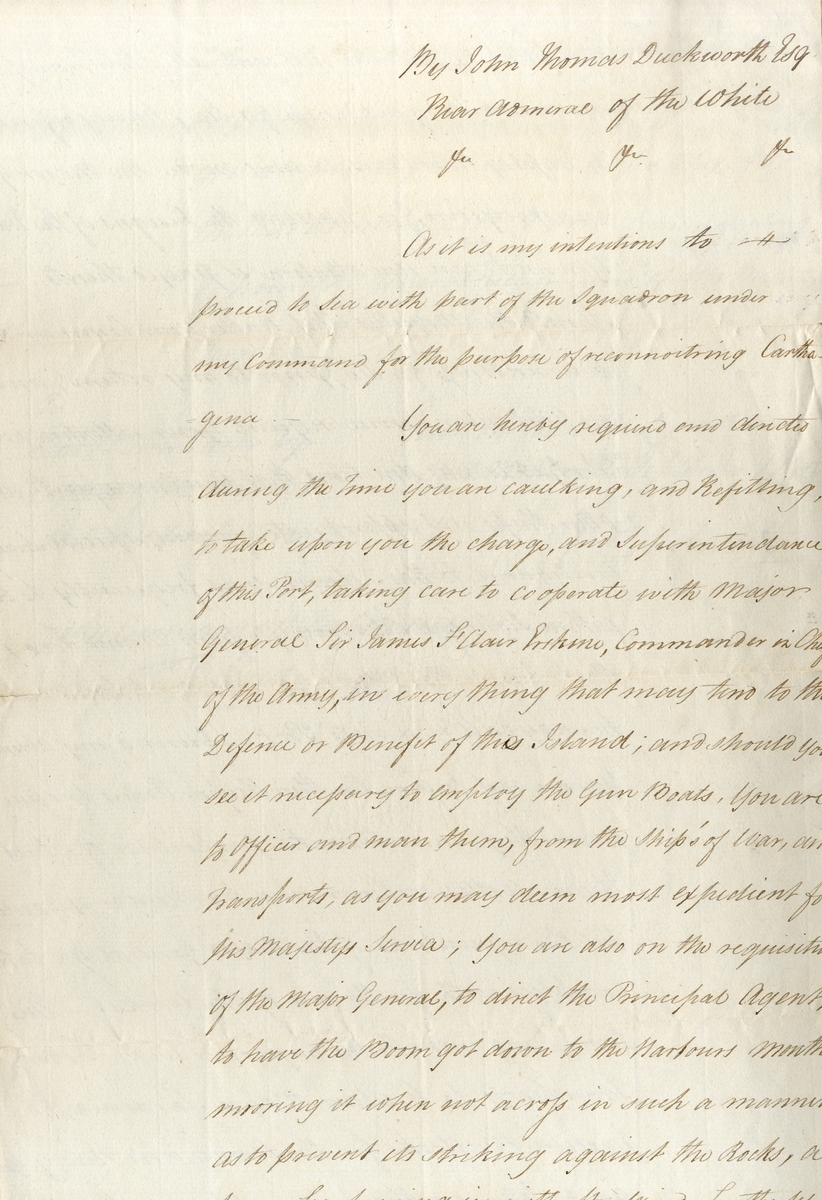 By John Thomas Duckworth Esq
Rear Admiral of the White
&c &c &c
As it is my intentions to
proceed to Sea with part of the Squadron under
my Command for the purpose of reconnoitring Cartha-
gena You are hereby required and directed
during the time you are caulking, and Refitting,
to take upon you the charge, and Superintendance
of this Port, taking care to cooperate with Major
General Sir James St Clair Erskine, Commander in Chi
of the Army, in every thing that may tend to the
Defence or Benefit of this Island; and should yo
see it necessary to employ the Gun Boats, You are
to Officer and man them, from the Ship's of War, an
Transports, as you may deem most expedient fo
His Majestys Service; You are also on the requisiti
of the Major General, to direct the Principal Agent,
to have the Boom got down to the Harbours mouth
mooring it when not across in such a manner
as to prevent its striking against the Rocks, a